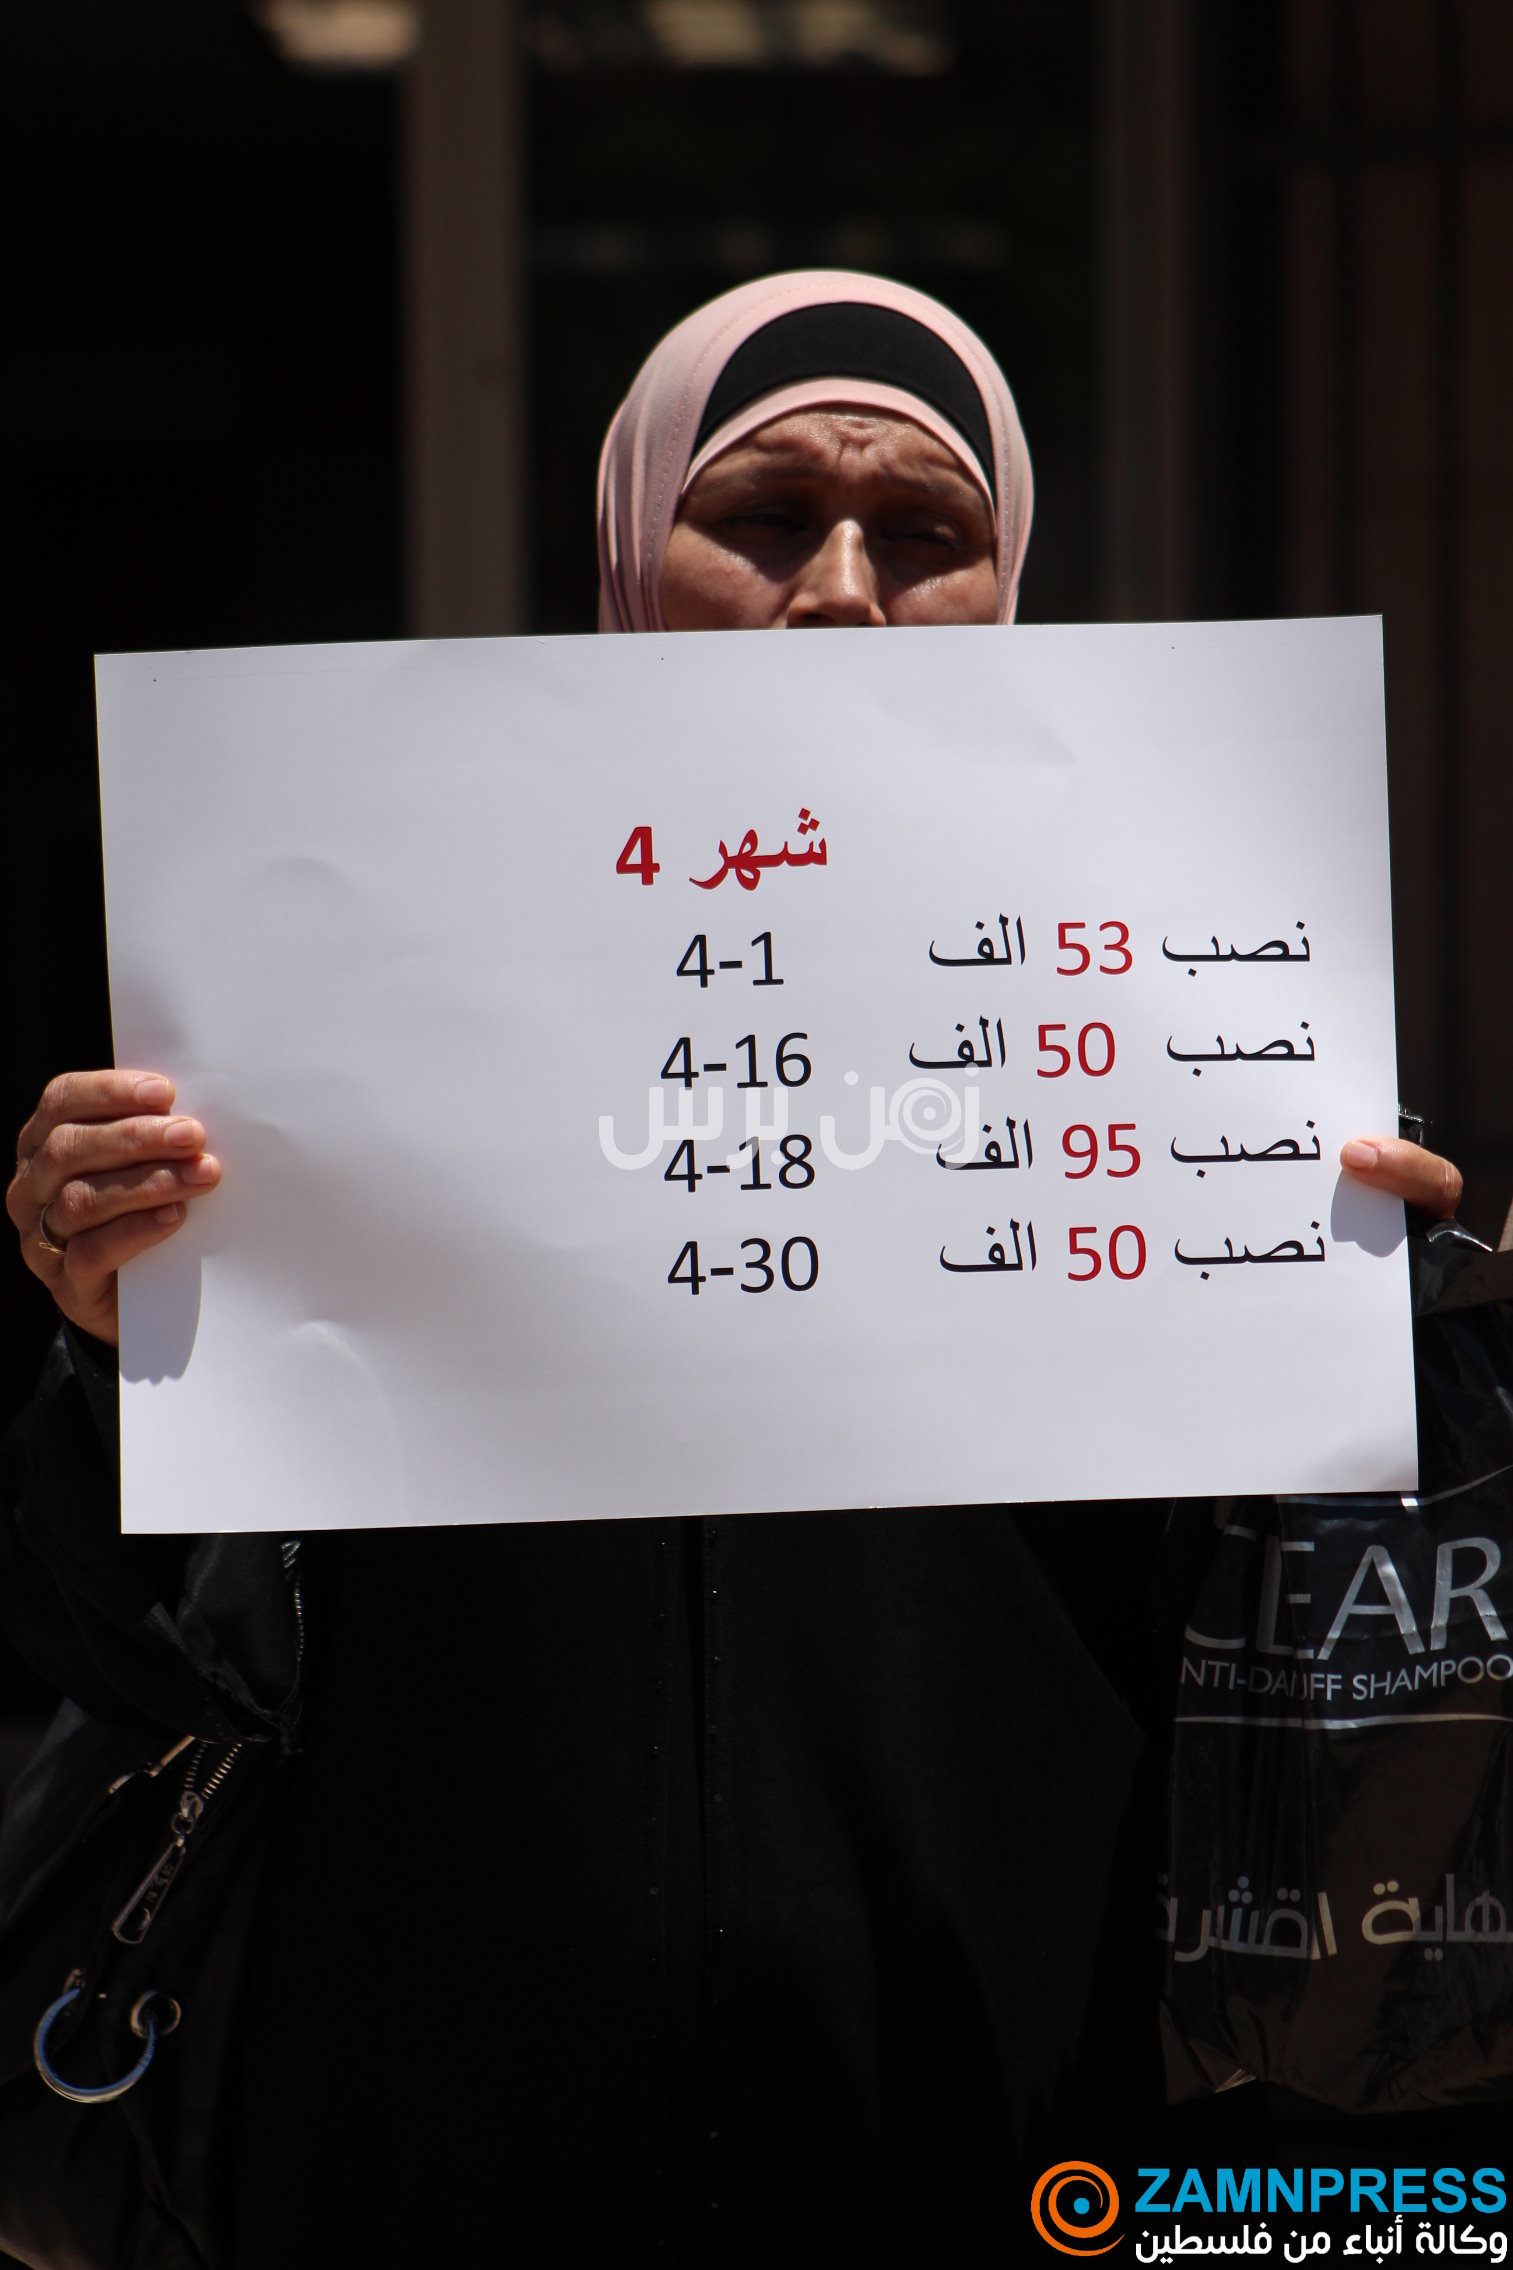 شهر 4
نصب 53 الف 4-1
نصب 50 الف 4-16
نصب 95 الف 4-18
نصب 50 الف 4-30
زمن برس
CLEAR
ANTI-DANDRUFF SHAMPOO
نهاية القشرة
ZAMNPRESS
وكالة أنباء من فلسطين